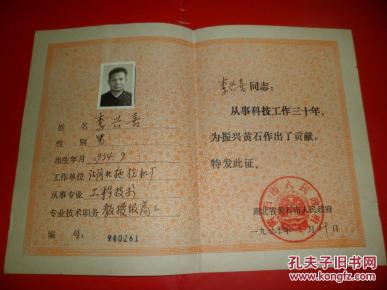 姓名 李兴喜
性别 男
出生年月 1934.9
工作单位 湖北拖拉机厂
从事专业 工程技术
专业技术职务 教授级高工
编号：940261
李兴喜同志：
从事科技工作三十年，
为振兴黄石作出了贡献，
特发此证。
湖北省黄石市人民政府
孔夫子旧书网